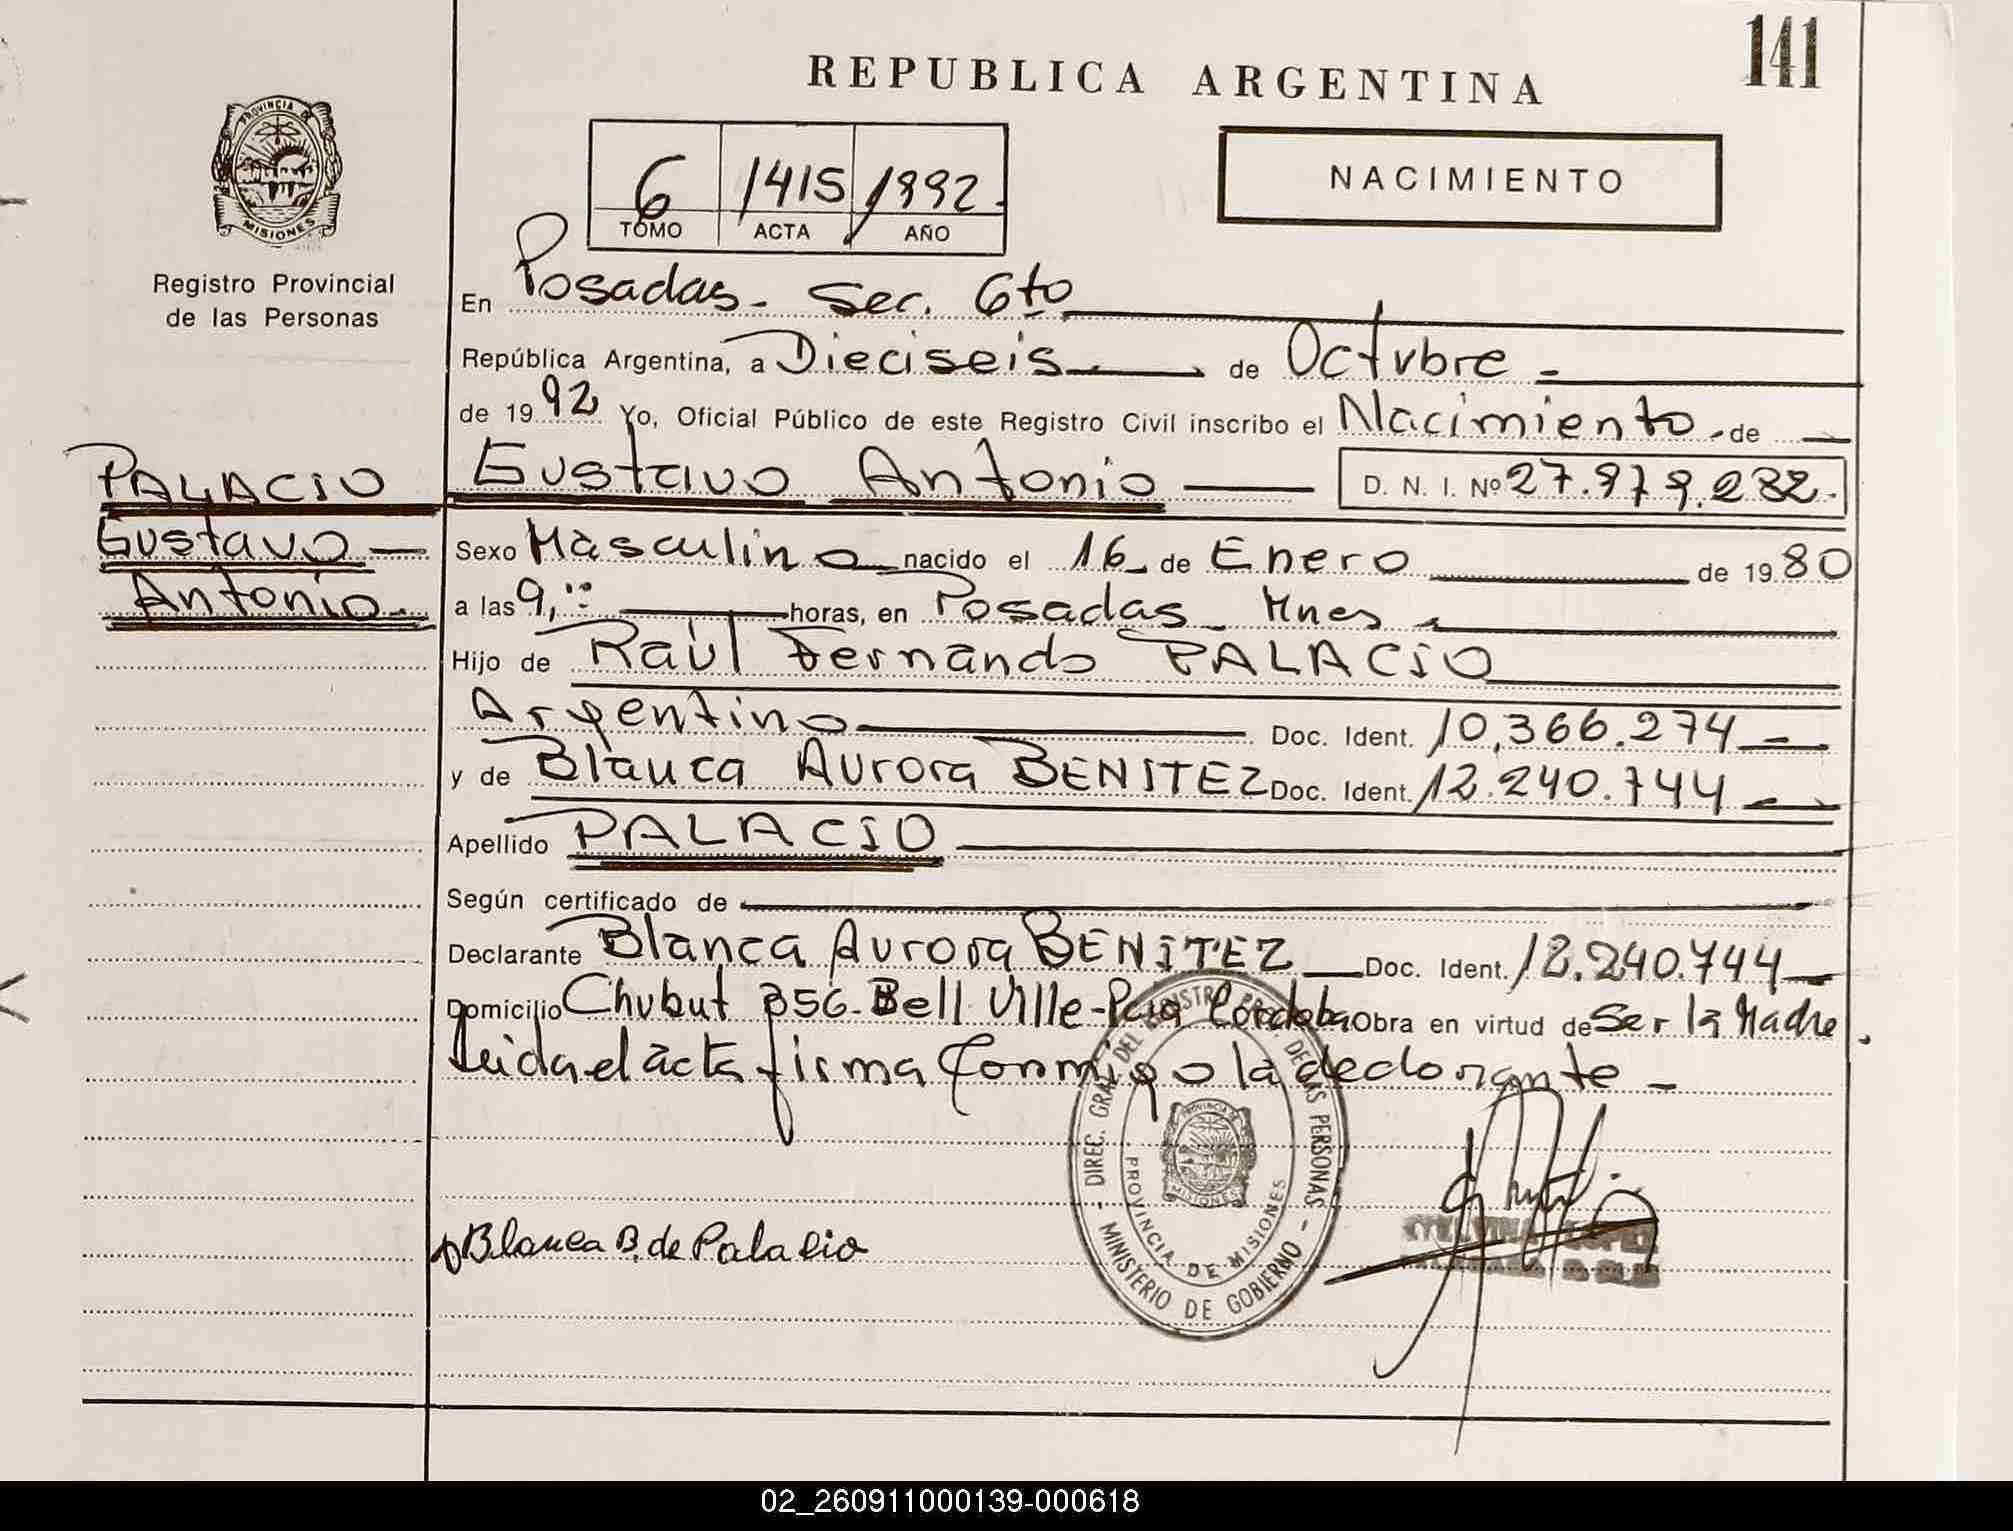 141
REPUBLICA ARGENTINA
6 1415 1992
TOMO ACTA AÑO
NACIMIENTO
PROVINCIA DE
MISIONES
Registro Provincial
de las Personas
En Posadas - Sec. 6to
República Argentina, a Dieciseis de Octubre -
de 19 92 Yo, Oficial Público de este Registro Civil inscribo el Nacimiento de
PALACIO Gustavo Antonio D. N. I. Nº 27.979.232.
Gustavo Sexo Masculino nacido el 16 de Enero de 19 80
Antonio. a las 9,00 horas, en Posadas Mnes
Hijo de Raúl Fernando PALACIO
Argentino Doc. Ident. 10,366.274
y de Blanca Aurora BENITEZ Doc. Ident. 12.240.744
Apellido PALACIO
Según certificado de
Declarante Blanca Aurora BENITEZ Doc. Ident. 12.240.744
Domicilio Chubut 356 - Bell Ville - Pcia Cordoba Obra en virtud de Ser la Madre.
Leida el acta firma Conmigo la declarante -
DIREC. GRAL. DEL REGISTRO PROV. DE LAS PERSONAS
PROVINCIA DE MISIONES
MINISTERIO DE GOBIERNO
Blanca B. de Palacio
02_260911000139-000618